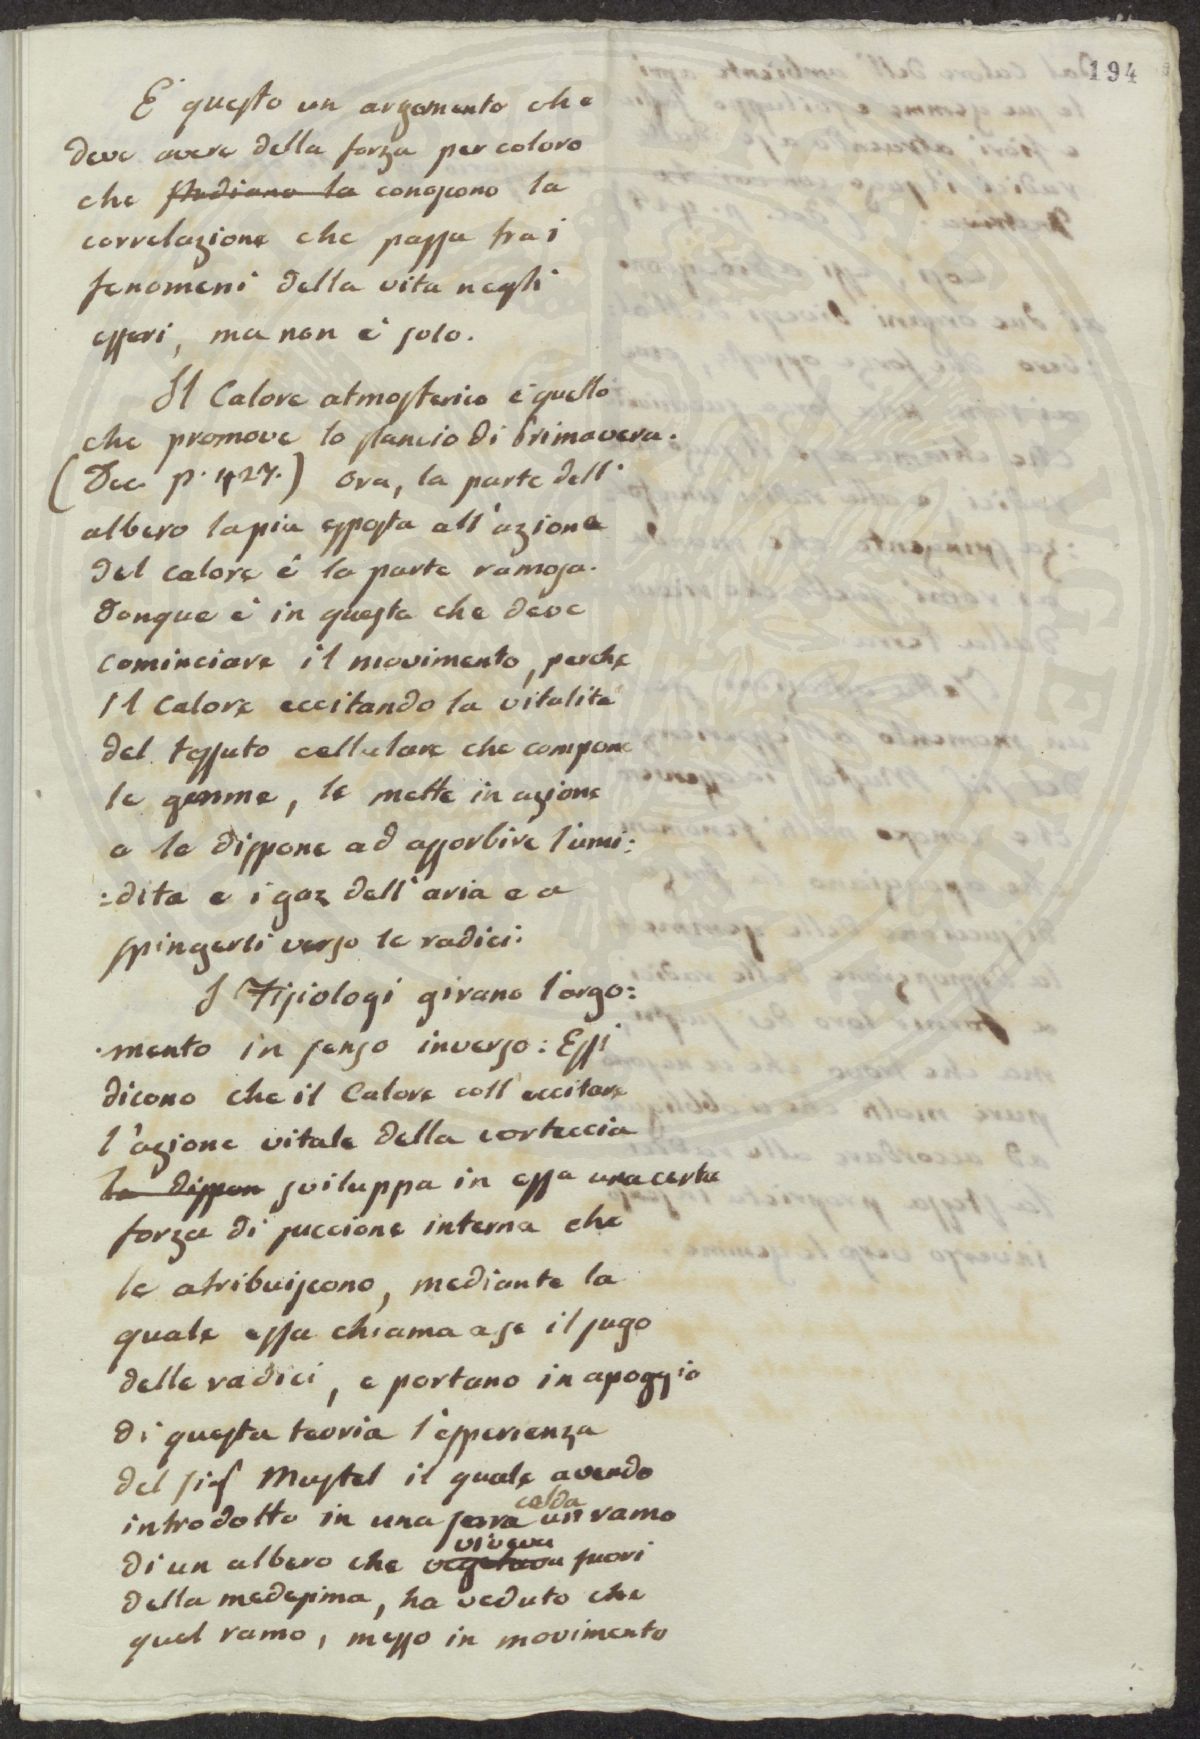 194
E' questo un argomento che
deve avere della forza per coloro
che studiano la conoscono la
correlazione che passa fra i
fenomeni della vita negli
esseri, ma non è solo.
Il Calore atmosferico è quello
che promove lo slancio di primavera.
(Dec. p. 427.) Ora, la parte dell'
albero la più esposta all'azione
del calore è la parte ramosa.
Donque è in questa che deve
cominciare il movimento, perche
il Calore eccitando la vitalità
del tessuto cellulare che compone
le gemme, le mette in azione
e le dispone ad assorbire l'umi:
:dita e i gaz dell'aria e a
spingerli verso le radici.
I Fisiologi girano l'argo:
:mento in senso inverso: Essi
dicono che il Calore coll'eccitare
l'azione vitale della corteccia
la dispon sviluppa in essa una certa
forza di succione interna che
le atribuiscono, mediante la
quale essa chiama a se il sugo
delle radici, e portano in apoggio
di questa teoria l'esperienza
del Sig. Mustel il quale avendo
introdotto in una serra calda un ramo
di un albero che vegetava viveva fuori
della medesima, ha veduto che
quel ramo, messo in movimento